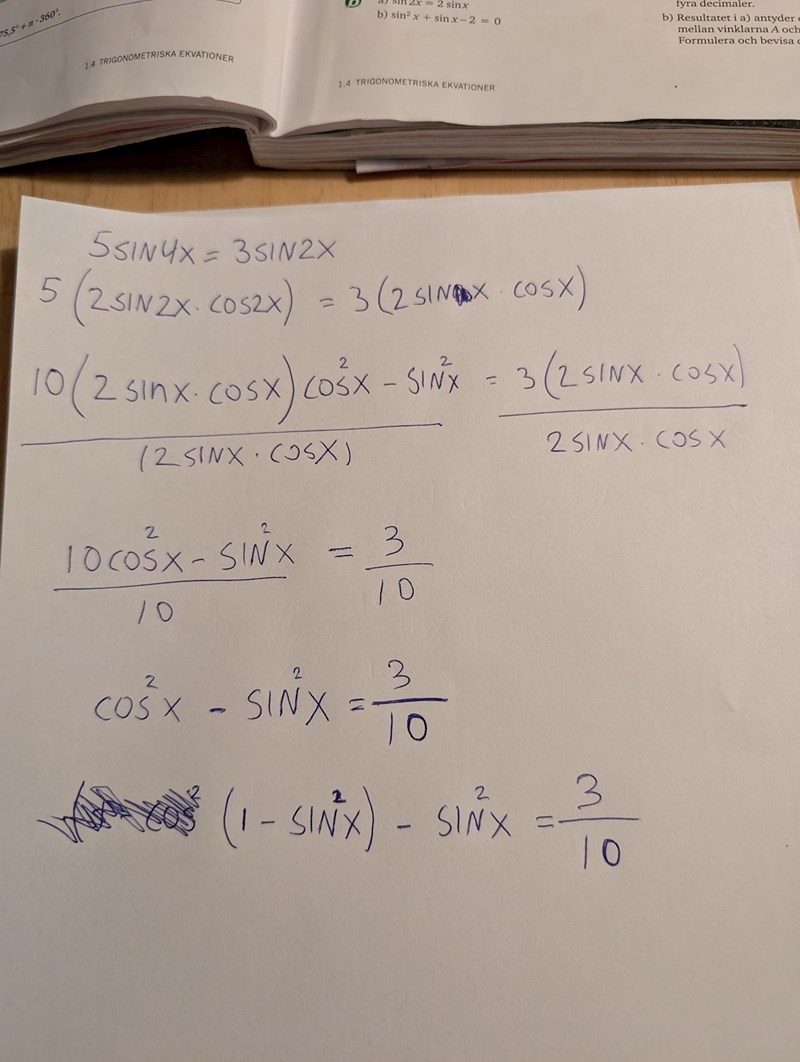 75,5° + n · 360°.
1.4 TRIGONOMETRISKA EKVATIONER
a) sin 2x = 2 sin x
b) sin² x + sin x – 2 = 0
1.4 TRIGONOMETRISKA EKVATIONER
fyra decimaler.
b) Resultatet i a) antyder
mellan vinklarna A och
Formulera och bevisa
5 SIN4X = 3 SIN2X
5 (2 SIN2X · COS2X) = 3 (2 SINX · COSX)
10 (2 sinx · cosx) cos²x – SIN²X = 3 (2 SINX · COSX)
(2 SINX · COSX) 2 SINX · COSX
10 COS²X – SIN²X = 3
10 10
COS²X – SIN²X = 3
10
cos² (1 – SIN²X) – SIN²X = 3
10